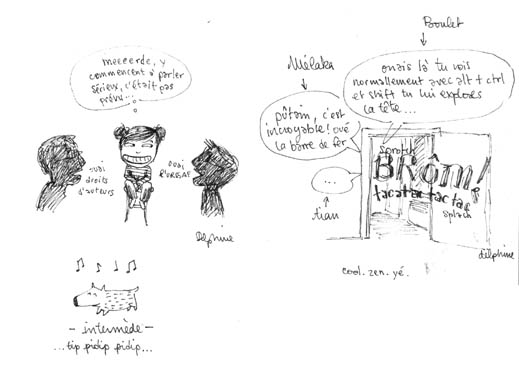 meeeerde, y
commencent à parler
sérieux, c'était pas
prévu...
ouai
droits
d'auteurs
ouai
l'URSSAF
Delphine
- intermède -
...tip pidip pidip...
Boulet
ouais là tu vois
normallement avec alt + ctrl
et shift tu lui exploses
la tête...
Mélaka
pûtain, c'est
incroyable! oué
la barre de fer
...
sprotch
BRÔM!
tacatac tac tac
splach
delphine
cool. zen. yé.